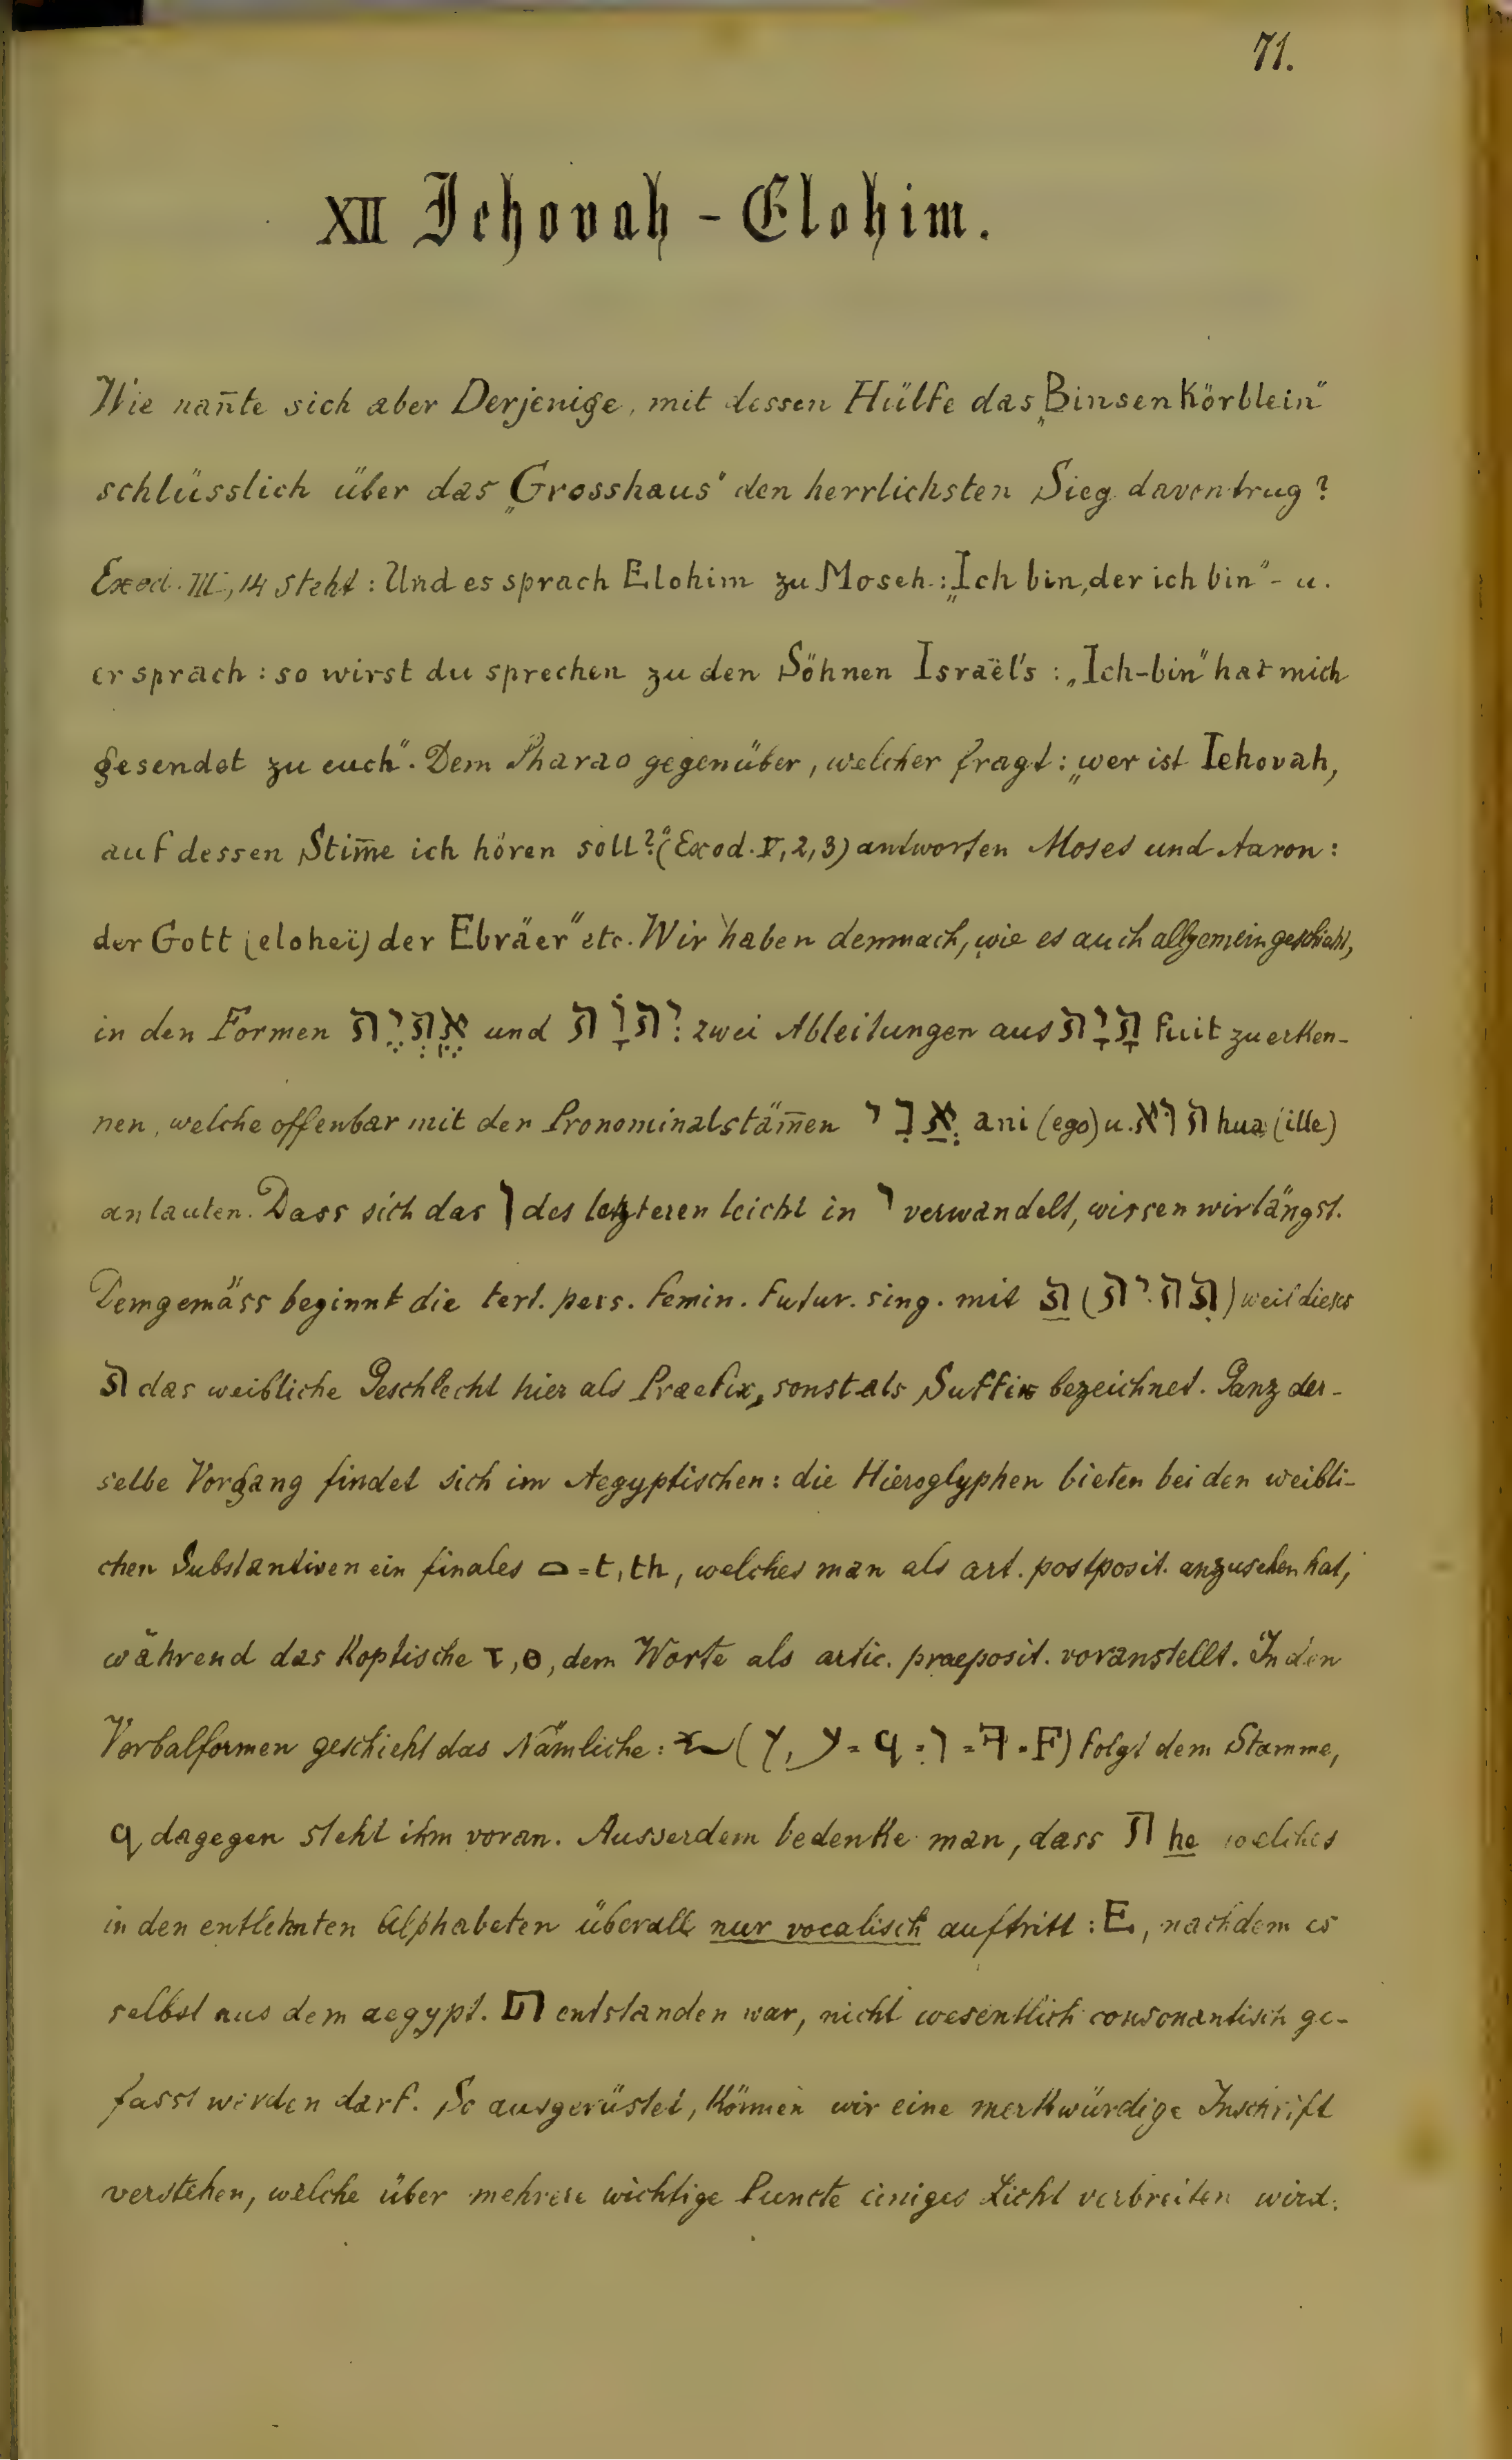 71.
XII Jehovah - Elohim.
Wie nan̄te sich aber Derjenige, mit dessen Hülfe das „Binsenkörblein“
schlüsslich über das „Grosshaus“ den herrlichsten Sieg davontrug?
Exod. III, 14 steht: Und es sprach Elohim zu Moseh: „Ich bin, der ich bin“ - u.
er sprach: so wirst du sprechen zu den Söhnen Israël's: „Ich-bin“ hat mich
gesendet zu euch“. Dem Pharao gegenüber, welcher fragt: „wer ist Iehovah,
auf dessen Stim̄e ich hören soll?“ (Exod. V, 2, 3) antworten Moses und Aaron:
der Gott (eloheï) der Ebräer“ etc. Wir haben demnach, wie es auch allgemein geschieht,
in den Formen אֶהְיֶה und יְהוָֹה zwei Ableitungen aus הָיָה fuit zu erken-
nen, welche offenbar mit den Pronominalstäm̄en אֲנִי ani (ego) u. הוּא hua (ille)
anlauten. Dass sich das ו des letzteren leicht in י verwandelt, wissen wir längst.
Demgemäss beginnt die tert. pers. femin. futur. sing. mit ת (תִהיה) weil dieses
ת das weibliche Geschlecht hier als Praefix, sonst als Suffix bezeichnet. Ganz der-
selbe Vorgang findet sich im Aegyptischen: die Hieroglyphen bieten bei den weibli-
chen Substantiven ein finales 𓏏 = t, th, welches man als art. postposit. anzusehen hat,
während das Koptische ⲧ, ⲑ, dem Worte als artic. praeposit. voranstellt. In den
Verbalformen geschieht das Nämliche: 𓆑 (γ, y = ϥ = ו = ꟻ = F) folgt dem Stamme,
ϥ dagegen steht ihm voran. Ausserdem bedenke man, dass ה he welches
in den entlehnten Alphabeten überall nur vocalisch auftritt: E, nachdem es
selbst aus dem aegypt. 𓉔 entstanden war, nicht wesentlich consonantisch ge-
fasst werden darf. So ausgerüstet, können wir eine merkwürdige Inschrift
verstehen, welche über mehrere wichtige Puncte einiges Licht verbreiten wird.